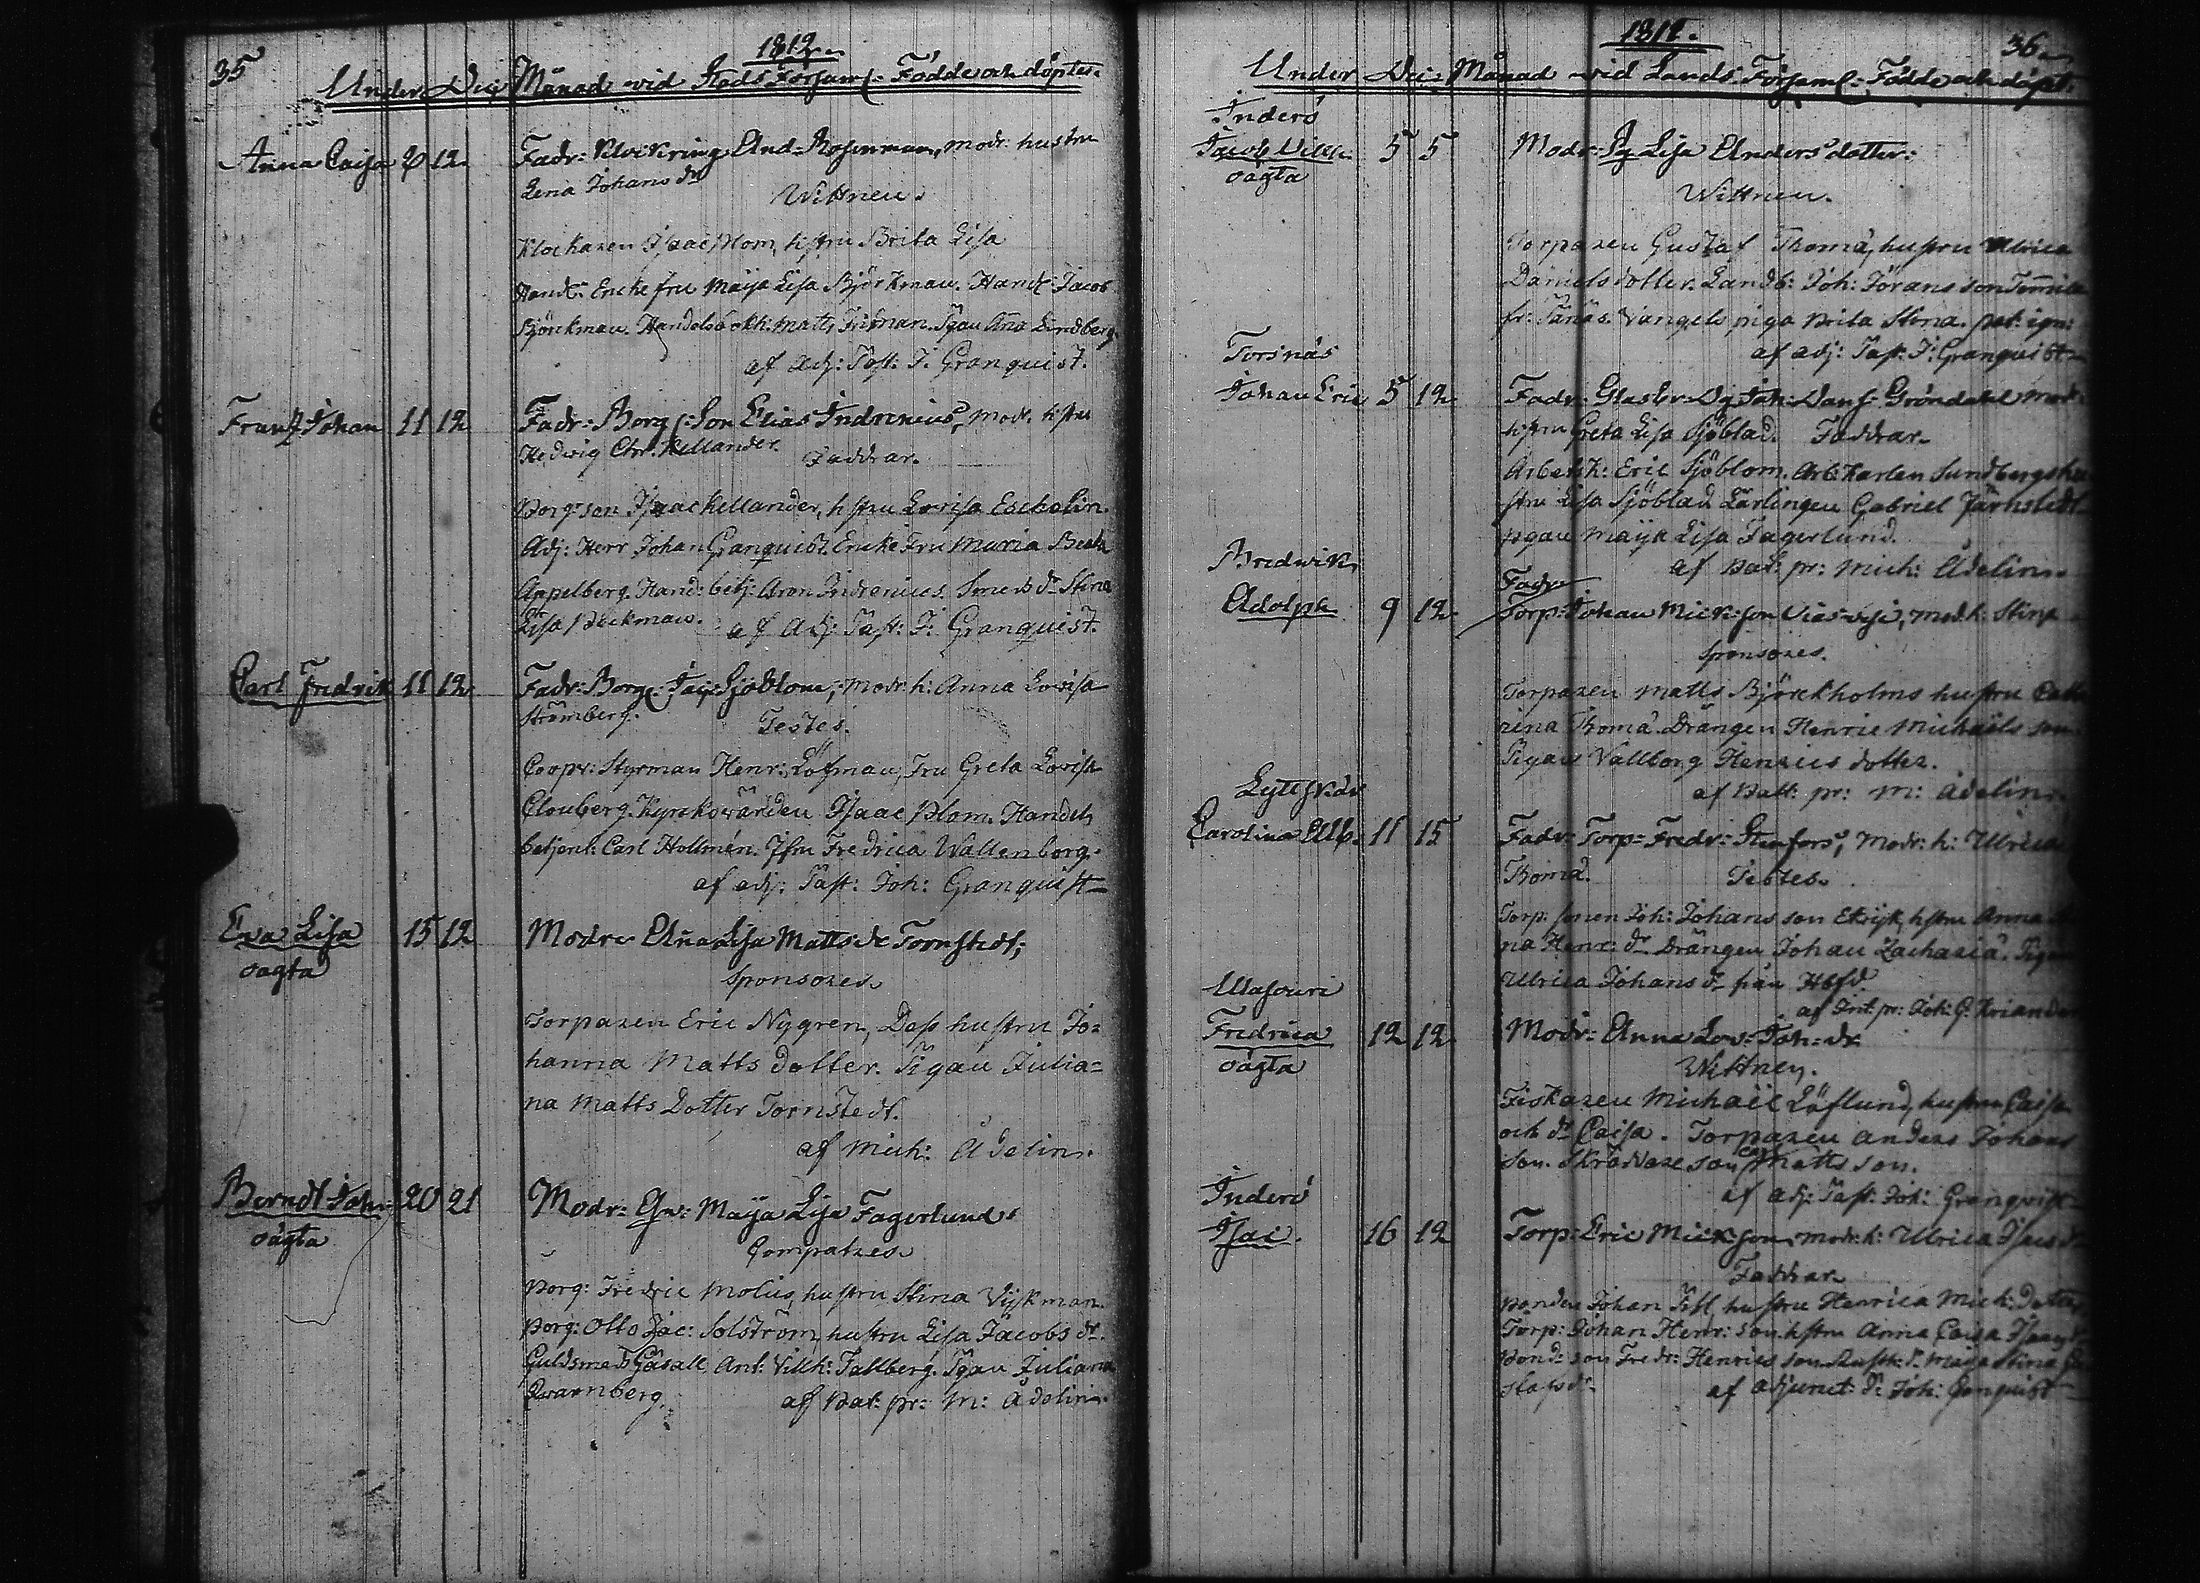 35
1812.
Under Decs Månad vid Stads Församl: Födde och döpte.
Anna Caisa 12
Fadr: And: Rosenman, modr: hustru
Lena Johans dr
Wittnen.
Klockaren Isaac Blom, hstru Brita Lisa
Handl: Encke fru Maija Lisa Björkman. Handl: Jacob
Björckman. Handelsb: Matts Friman. Pigan Aña Lindberg.
af Adj: Past: J. Granquist.
Frans Johan 11 12
Fadr: Borg: Son Elias Indrenius, Modr. hstru
Hedwig Chr. Kellander.
Faddrar.
Borg: son Isaac Kellander, hstru Lovisa Eckelin.
Adj: Herr Johan Granquist. Encke Fru Maria Beata
Appelberg. Hand: betj: Aron Indrenius. Smeds dr Stina
Lisa Beckman.
af Adj: Past: J: Granquist.
Carl Fredrik 11 12
Fadr: Borg: Sjöblom, Modr. h: Anna Lovisa
Strömberg.
Testes.
Coopv: Styrman Henr: Löfman, Fru Greta Lovisa
Clouberg. Kyrckowärden Isaac Blom. Handels
betjent: Carl Hollmén. Jfru Fredrica Wallenborg.
af adj: Past: Joh: Granquist
Eva Lisa 15 12
oägta
Modr: Aña Lisa Matts dr Tornstedt;
Sponsores.
Torparen Eric Nygren, Dess hustru Jo=
hanna Matts dotter. Pigan Julia=
na Matts Dotter Tornstedt.
af Mich: Adelin.
Berndt Joh: 20 21
oägta
Modr: Maija Lisa Fagerlund
Compatres
Borg: Fredric Molin, hustru Stina Vijkman.
Borg: Otto Jac: Solström, hustru Lisa Jacobs dr.
Guldsmeds Gäsäll Ant: Vilh: Tallberg. Pigan Juliana
Qvarnberg.
af Bat: pr: M: Adelin.
36
1812.
Under Dec: Månad vid Lands Församl: Födde och döpt.
Inderö
Jacob Vilh: 5 5
oägta
Modr: Pig Lisa Andersdotter:
Wittnen.
Torparen Gustaf Thomä, hustru Ulrica
Danielsdotter. Landb: Joh: Jörans son
fr: Sänäs. Vangels piga Brita Stina.
af adj: Past: J: Granquist
Torsnäs
Johan Eric 5 12
Fadr: Joh: Gröndahl Modr:
hstru Greta Lisa Sjöblad. Faddrar
Arbetsk: Eric Sjöblom. Arb: Karlen Sundbergs hu
stru Lisa Sjöblad. Lärlingen Gabriel Järnstedt
pigan Maija Lisa Fagerlund.
af Bat: pr: Mich: Adelin
Bredwik
Adolph 9 12
Fadr
Torp: Johan Mick: son mod: h: Stina
Sponsores.
Torparen Matts Björckholms hustru Catha
rina Thomä. Drängen Henric Michaëls son
Pigan Vallborg Henrics dotter.
af Batt: pr: M: Adelin.
Carolina Ulr: 11 15
Fadr: Torp: Fredr: Stenfors, Modr: h: Ulrica
Thomä.
Testes.
Torp: sonen Joh: Johans son hstru Anna
na Henr: dr Drängen Johan Zachariä. Pigan
Ulrica Johans dr från Hbfd
af Int: pr: Joh: G: Kriander
Masouri
Fredrica 12 12
oägta
Modr: Anna Lov: Joh: dr
Wittnen.
Fiskaren Michaël Löflund, hustru Caisa
och dr Caisa. Torparen Anders Johans
son. Skräddare son Matts son.
af adj: Past: Joh: Granquist
Inderö
Isac. 16 12
Torp: Eric Mick: son, modr: h: Ulrica Isacs dr
Faddrar
Bonden Johan hustru Henrica Mich: Dotter,
Torp: Johan Henr: son hstru Anna Caisa
Bond: son Fredr: Henrics son Maija Stina
stafs dr.
af adjunct: Joh: Granquist